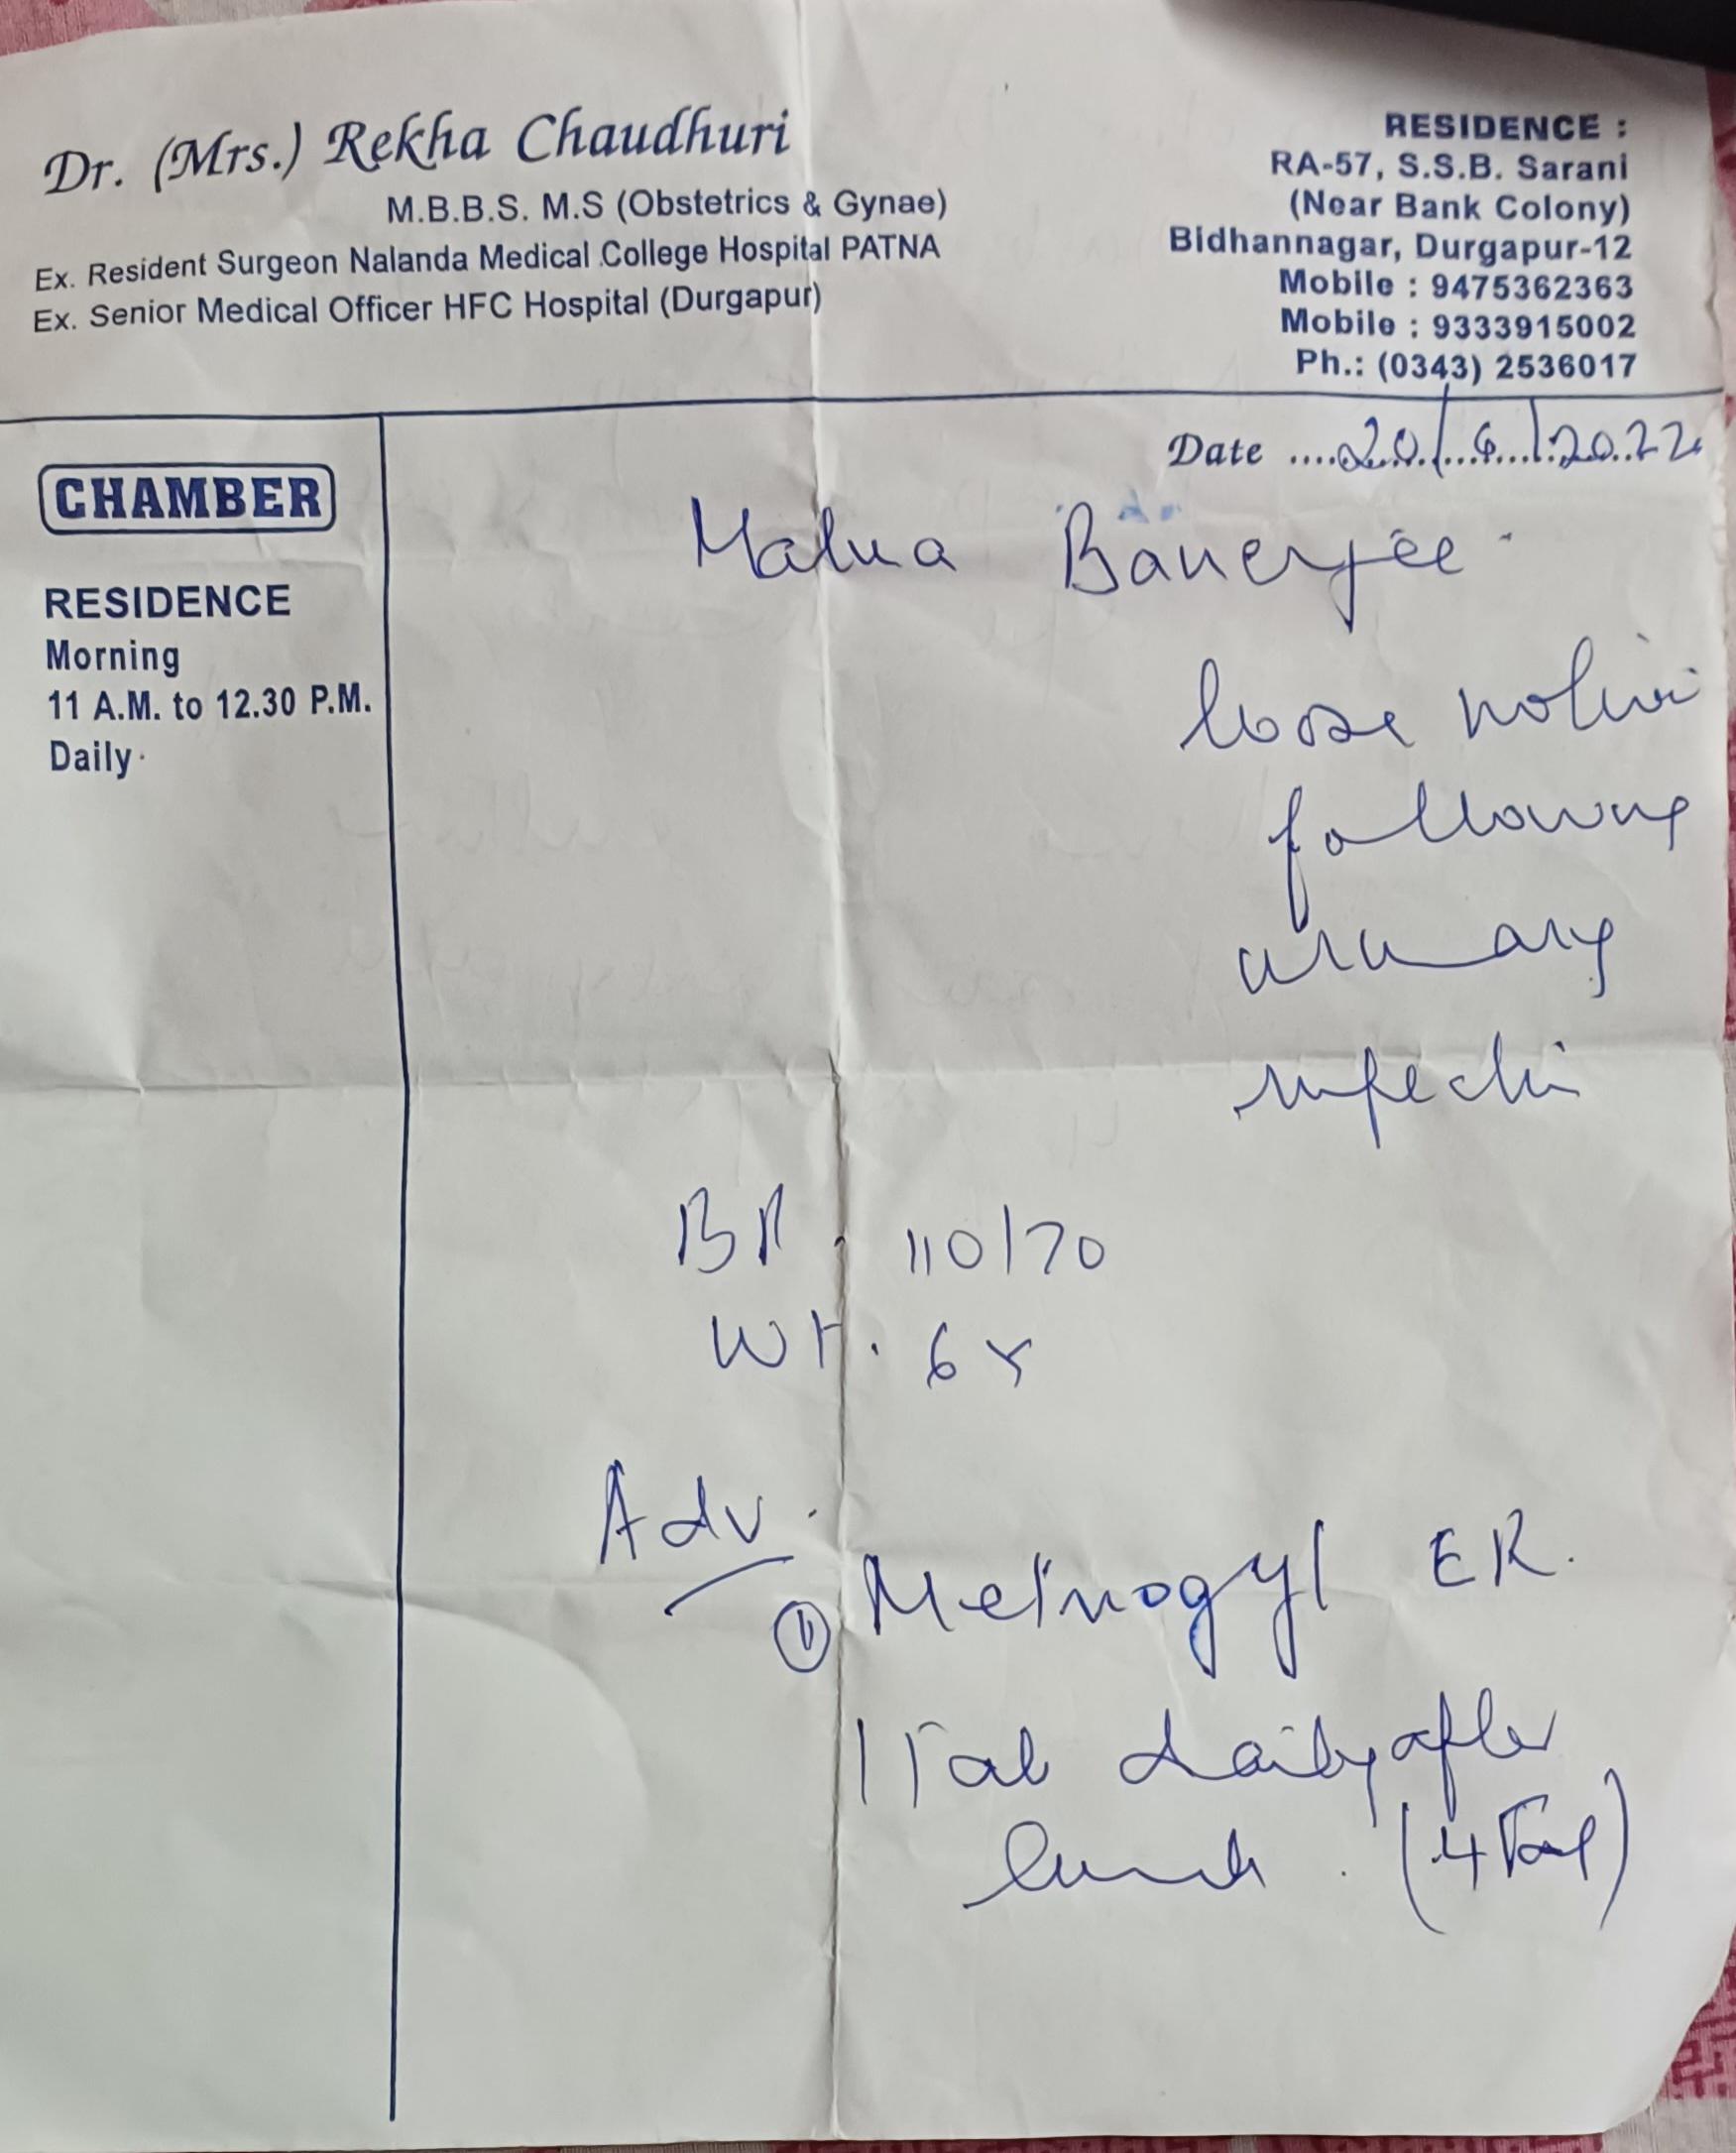 Dr. (Mrs.) Rekha Chaudhuri
M.B.B.S. M.S (Obstetrics & Gynae)
Ex. Resident Surgeon Nalanda Medical College Hospital PATNA
Ex. Senior Medical Officer HFC Hospital (Durgapur)
RESIDENCE :
RA-57, S.S.B. Sarani
(Near Bank Colony)
Bidhannagar, Durgapur-12
Mobile : 9475362363
Mobile : 9333915002
Ph.: (0343) 2536017
CHAMBER
RESIDENCE
Morning
11 A.M. to 12.30 P.M.
Daily
Date ....20/6/2022
Banerjee
loose motion
following
urinary
infection
BP. 110/70
Wt. 6
Adv.
① Metrogyl ER.
1 Tab daily after
lunch. (4 Tab)